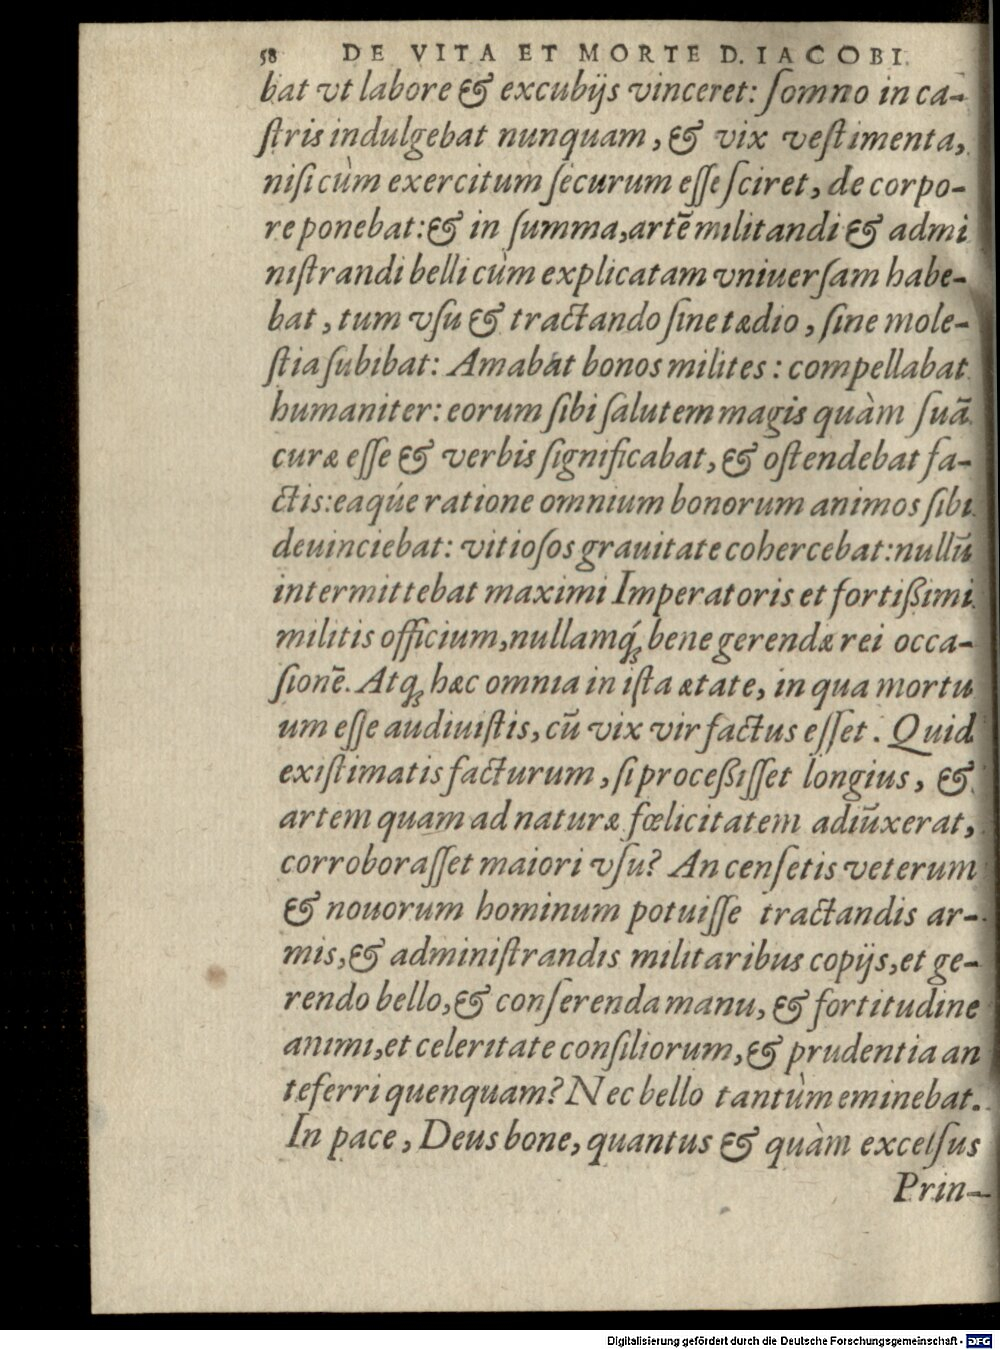 58 DE VITA ET MORTE D. IACOBI.
bat vt labore & excubijs vinceret: ſomno in ca-
ſtris indulgebat nunquam, & vix veſtimenta,
niſi cùm exercitum ſecurum eſſe ſciret, de corpo-
re ponebat: & in ſumma, artē militandi & admi
niſtrandi belli cùm explicatam vniuerſam habe-
bat, tum vſu & tractando ſine tædio, ſine mole-
ſtia ſubibat: Amabat bonos milites: compellabat
humaniter: eorum ſibi ſalutem magis quàm ſuā
curæ eſſe & verbis ſignificabat, & oſtendebat fa-
ctis: eaqúe ratione omnium bonorum animos ſibi
deuinciebat: vitioſos grauitate cohercebat: nullū
intermittebat maximi Imperatoris et fortißimi
militis officium, nullamq́ꝫ bene gerendæ rei occa-
ſionē. Atqꝫ hæc omnia in iſta ætate, in qua mortu
um eſſe audiuiſtis, cū vix vir factus eſſet. Quid
exiſtimatis facturum, ſi proceßiſſet longius, &
artem quam ad naturæ fœlicitatem adiūxerat,
corroboraſſet maiori vſu? An cenſetis veterum
& nouorum hominum potuiſſe tractandis ar-
mis, & adminiſtrandis militaribus copijs, et ge-
rendo bello, & conſerenda manu, & fortitudine
animi, et celeritate conſiliorum, & prudentia an
teferri quenquam? Nec bello tantùm eminebat.
In pace, Deus bone, quantus & quàm excelſus
Prin-
Digitalisierung gefördert durch die Deutsche Forschungsgemeinschaft - DFG